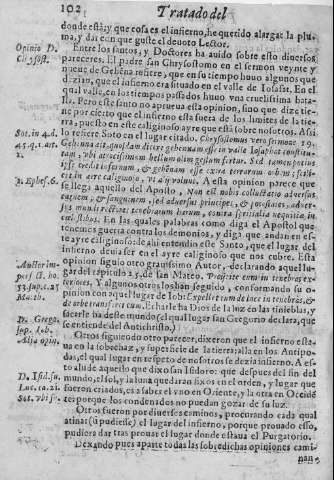 102 Tratado del
donde està, y que cosa es el infierno, he querido alargar la plu-
ma, y dar con que guste el deuoto Lector.
Opinio D. Chrysost.
Entre los santos, y Doctores ha auido sobre esto diuersos
pareceres. El padre san Chrysostomo en el sermon veynte y
nueue de Gehena refiere, que en su tiempo huuo algunos que
dezian, que el infierno era situado en el valle de Iosafat. En el
qual valle, en los tiempos passados huuo vna cruelissima bata-
lla. Pero este santo no aprueua esta opinion, sino que dize tie-
ne por cierto que el infierno esta fuera de los limites de la tie-
rra, puesto en este caliginoso ayre que està sobre nosotros. Assi
Sot. in 4. d. 45. q. 1. art. 2.
lo refiere Soto en el lugar citado. Chrysostomus vero sermone 29.
Gehenna ait, quosdam dicere gehennam esse in valle Iosaphat constitu-
tam, vbi atrocissimum bellum olim gestum fertur. Sed tamen potius
ipse credit infernum, & gehennam esse extra terrarum orbem: scili-
cet in aere caliginoso. A esta opinion parece que
2. Ephes. 6.
se llega aquello del Apostol, Non est nobis colluctatio aduersus
carnem, & sanguinem, sed aduersus principes, & potestates, aduer-
sus mundi rectores tenebrarum harum, contra spiritalia nequitiæ, in
cælestibus. En las quales palabras como diga el Apostol que
tenemos guerra contra los demonios, y diga que andan en es-
te ayre caliginoso: de ahi entendio este Santo, que el lugar del
infierno deuia ser en el ayre caliginoso que nos cubre. Esta
opinion siguio otro grauissimo Autor, declarando aquel lu-
gar del capitulo 25. de san Mateo, Proijcite eum in tenebras ex-
teriores. Y algunos otros los han seguido, conformando su o-
pinion con aquel lugar de Iob: Expellet eum de luce in tenebras, &
de orbe transferet eum. Echarle ha Dios de la luz en las tinieblas, y
D. Grego. sup. Iob.
sacarle ha deste mundo (el qual lugar san Gregorio declara, que
se entiende del Antichristo.)
Alia opin.
Otros siguiendo otro parecer, dixeron que el infierno esta-
ua en la sobrehaz, y superficie de la tierra: alla en los Antipo-
das, el qual lugar en respeto de nosotros se dezia infierno. A es-
to alude aquello que dixo san Isidoro: que despues del fin del
D. Isid. su. Luc. ca. 21. Sot. vbi s.
mundo, el sol, y la luna quedaran fixos en el orden, y lugar que
fueron criados, es a saber el vno en Oriente, y la otra en Occidẽ
te: porque los condenados no puedan gozar de su luz.
Otros fueron por diuersos caminos, procurando cada qual
atinar (si pudiesse) el lugar del infierno, porque prouado esso,
pudiera dar tras prouar el lugar donde estaua el Purgatorio.
Dexando pues aparte todas las sobredichas opiniones cami-
nan-